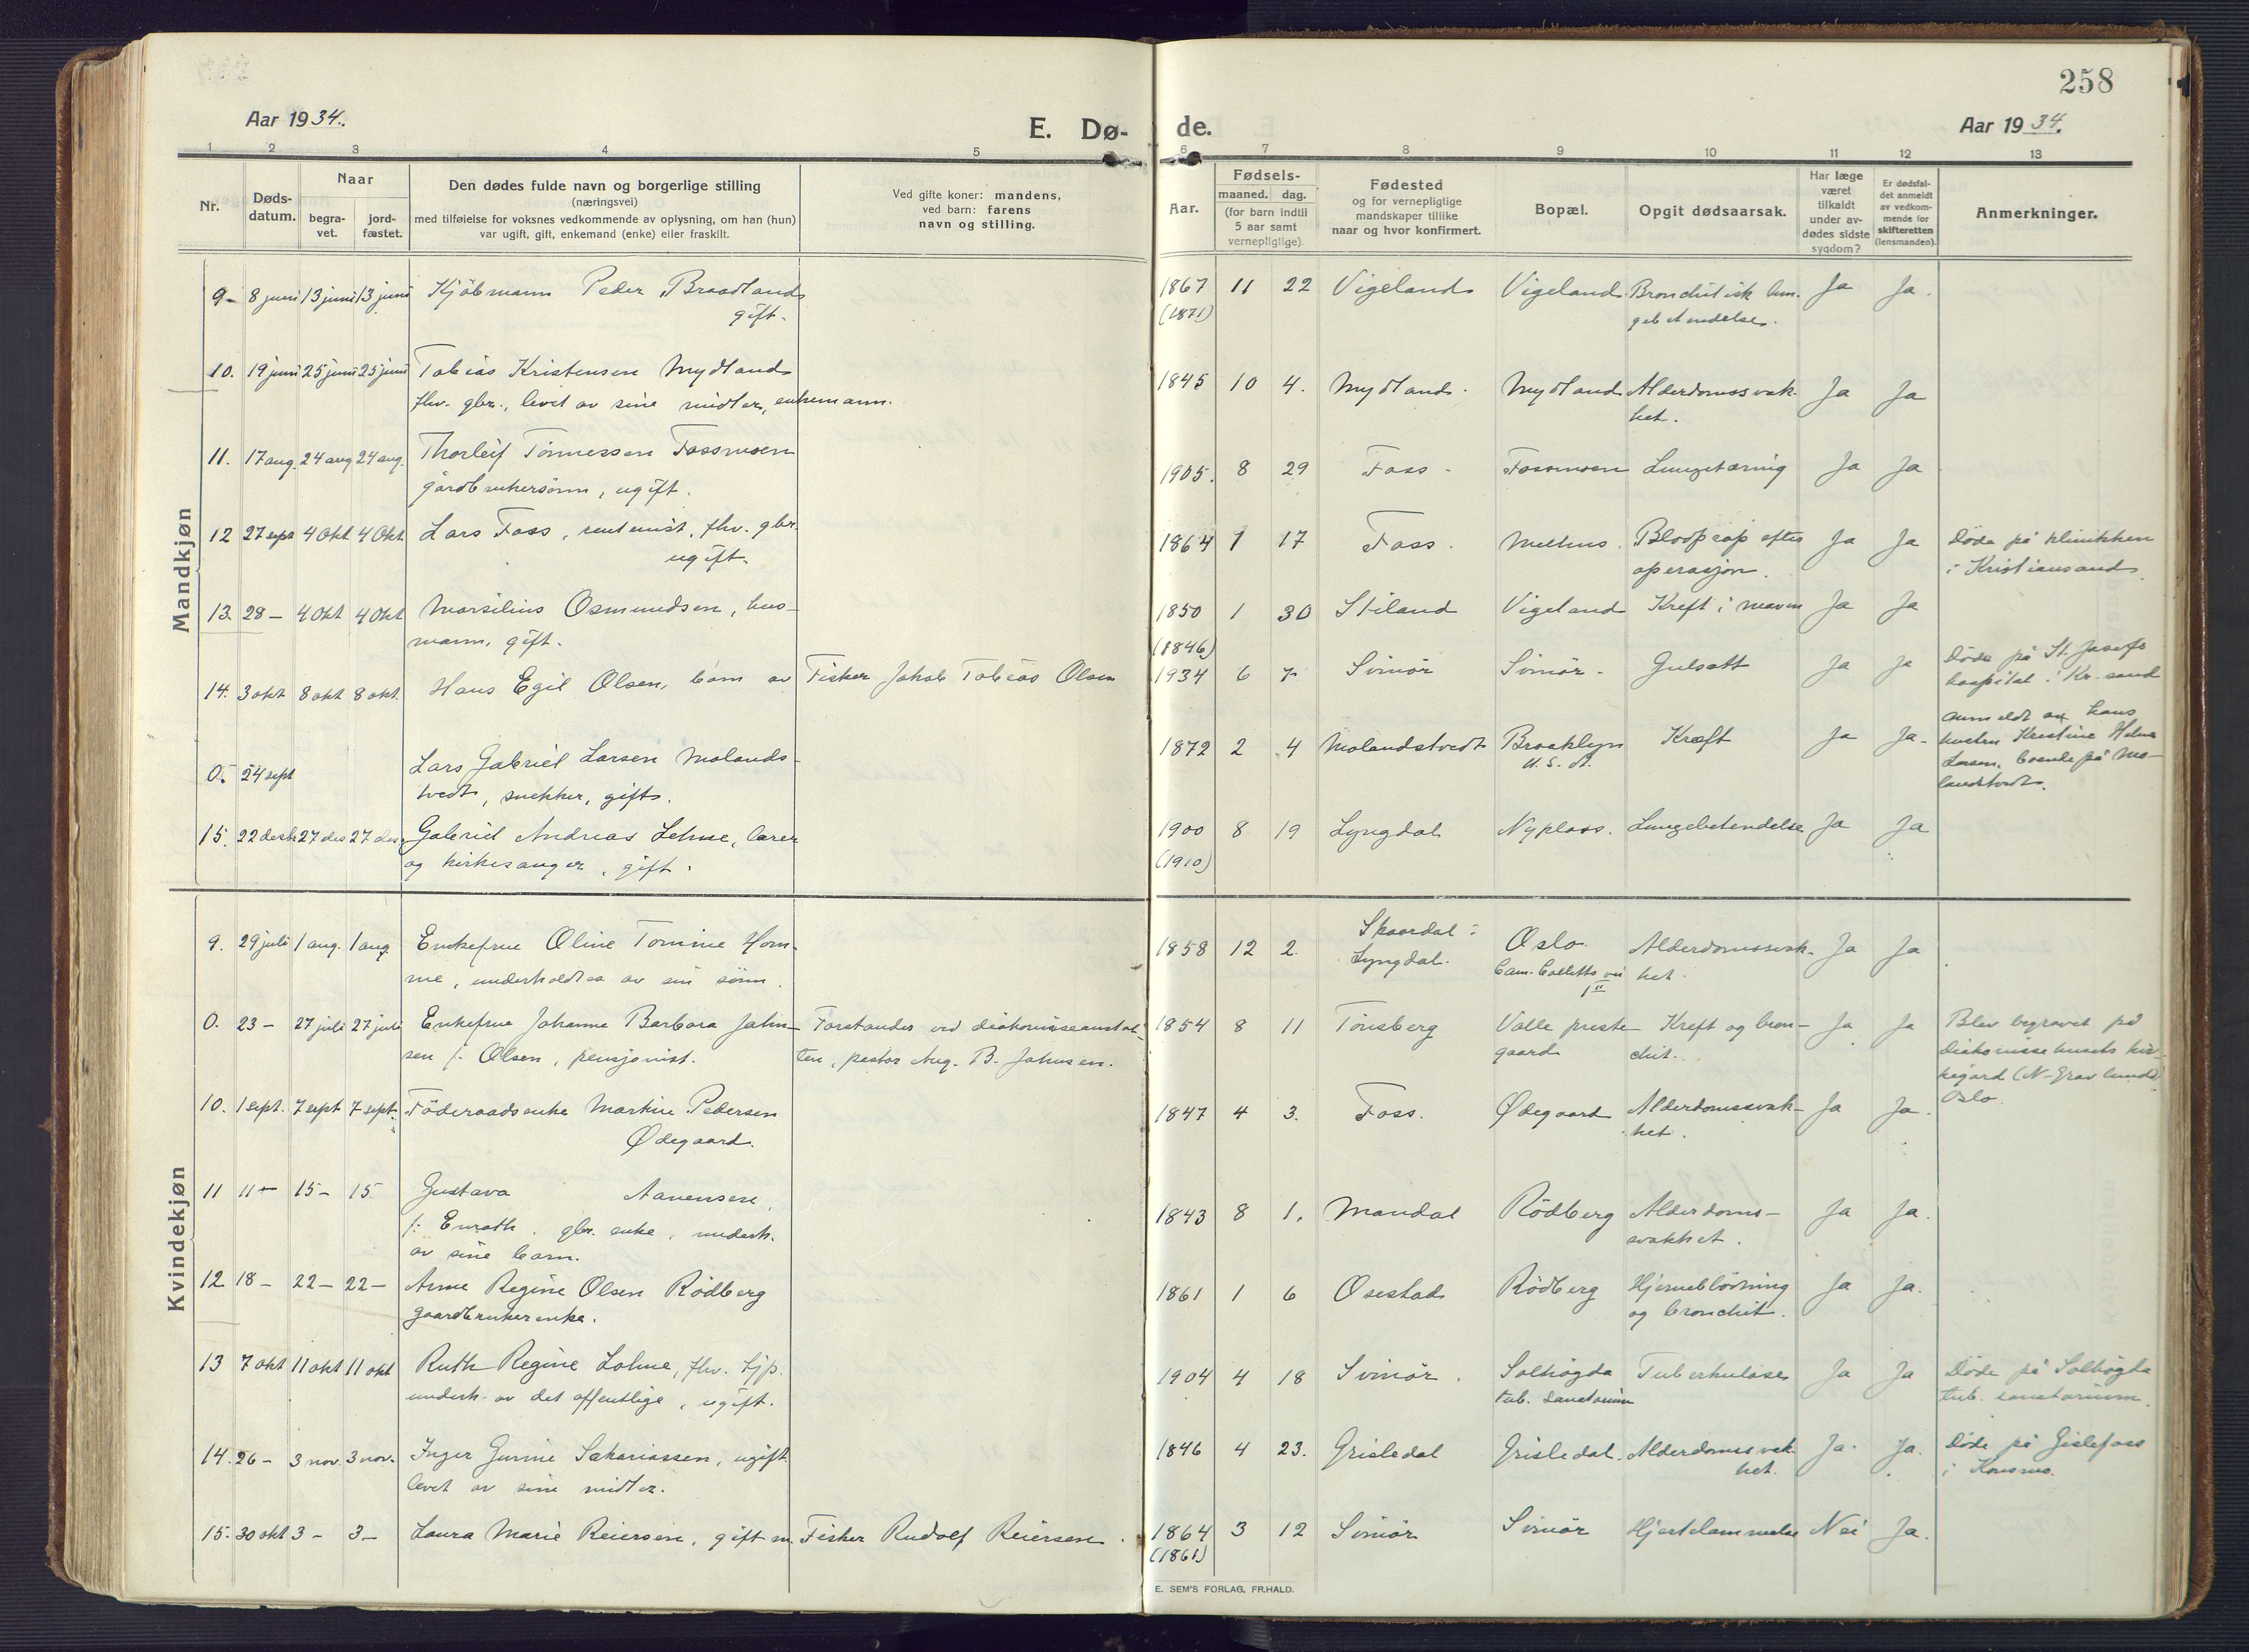 258
Aar 1934.
E. Dø-
de.
Aar 1934.
1 2 3 4 5
6 7 8 9 10 11 12 13
Nr.
Døds-
datum.
Naar
begra-
vet.
jord-
fæstet.
Den dødes fulde navn og borgerlige stilling
(næringsvei)
med tilføielse for voksnes vedkommende av oplysning, om han (hun)
var ugift, gift, enkemand (enke) eller fraskilt.
Ved gifte koner: mandens,
ved barn: farens
navn og stilling.
Aar.
Fødsels-
maaned. dag.
(for barn indtil
5 aar samt
vernepligtige).
Fødested
og for vernepligtige
mandskaper tillike
naar og hvor konfirmert.
Bopæl.
Opgit dødsaarsak.
Har læge
været
tilkaldt
under av-
dødes sidste
sygdom?
Er dødsfal-
det anmeldt
av vedkom-
mende for
skifteretten
(lensmanden).
Anmerkninger.
Mandkjøn
9- 8 juni 13 juni 13 juni Kjöbmann Peder Braadland 1867 11 22 Vigeland Vigeland Bronchitisk lun- Ja Ja.
gift. (1871) gebetendelse.
10. 19 juni 25 juni 25 juni Tobias Kristensen Mydland 1845 10 4. Mydland. Mydland Alderdomssvak- Ja Ja
fhv. gbr., levet av sine midler, enkemann. het.
11. 17 aug. 24 aug 24 aug. Thorleif Tönnessen Fossmoen 1905. 8 29 Foss - Fossmoen Lungetæring Ja Ja
gårdbrukersönn, ugift.
12 27 sept 4 Okt 4 Okt Lars Foss, rentenist, fhv. gbr. 1864 1 17 Foss. Melhus. Blodprop efter Ja Ja Döde på klinikken
ugift. operasjon. i Kristiansand.
13. 28 - 4 Okt 4 Okt Marsilius Osmundsen, hus- 1850 1 30 Stiland Vigeland Kreft i maven Ja Ja
mann, gift. (1846)
14. 3 okt 8 okt 8 okt. Hans Egil Olsen, barn av Fisker Jakob Tobias Olsen 1934 6 7 Svinör Svinör - Gulsott Ja Ja Döde på St. Josefs
hospital i Kr. sand
0. 24 sept Lars Gabriel Larsen Molands- 1872 2 4 Molandstvedt Brooklyn Kræft Ja Ja. anmeldt av hans
tvedt, snekker, gift. U. S. A. hustru Kristine Helene
Larsen, boende på Mo-
landstvedt.
15. 22 desbr 27 des 27 des. Gabriel Andreas Lehne, lærer 1900 8 19 Lyngdal Nyplass. Lungebetendelse Ja Ja
og kirkesanger, gift. (1910)
Kvindekjøn
9. 29 juli 1 aug. 1 aug. Enkefrue Oline Tomine Hom- 1858 12 2. Skaardal i Oslo. Alderdomssvak- Ja Ja
me, underholdtes av sin sönn. Lyngdal. Cam. Colletts vei het.
1 II
0. 23 - 27 juli 27 juli Enkefrue Johanne Barbara Jahn- Forstander ved diakonisseanstal- 1854 8 11 Tönsberg Valle preste- Kreft og bron- Ja Ja Blev begravet på
sen f. Olsen, pensjonist. ten, pastor Aug. B. Jahnsen. gaard chit. Diakonissehusets kir-
kegård (N- Gravlund)
Oslo.
10. 1 sept. 7 sept 7 sept. Föderaadsenke Martine Pedersen 1847 4 3. Foss. Ødegaard Alderdomssvak- Ja Ja.
Ødegaard. het.
11 11 - 15 - 15 Gustava Aanensen, 1843 8 1. Mandal Rödberg Alderdoms- Ja Ja.
f. Enrath, gbr. enke, underh. svakhet.
av sine barn.
12 18 - 22 - 22 - Anne Regine Olsen Rödberg 1861 1 6 Osestad Rödberg Hjerneblödning Ja Ja.
gaardbrukerenke. og bronchit.
13 7 okt 11 okt 11 okt Ruth Regine Lohne, fhv. tjp. 1904 4 18 Svinör. Solhögda Tuberkulose Ja Ja Döde på Solhögda
underh. av det offentlige, ugift. tub. sanatorium tub. sanatorium.
14. 26 - 3 nov. 3 nov. Inger Gurine Sakariassen, ugift 1846 4 23. Grisledal Grisledal. Alderdomssvak- Ja. Ja. Döde på Gislefoss
levet av sine midler. het. i Konsmo.
15. 30 okt 3 - 3 - Laura Marie Reiersen, gift m. Fisker Rudolf Reiersen. 1864 3 12 Svinör Svinör Hjertelammelse Nei Ja.
(1861)
E. SEM'S FORLAG, FR.HALD.